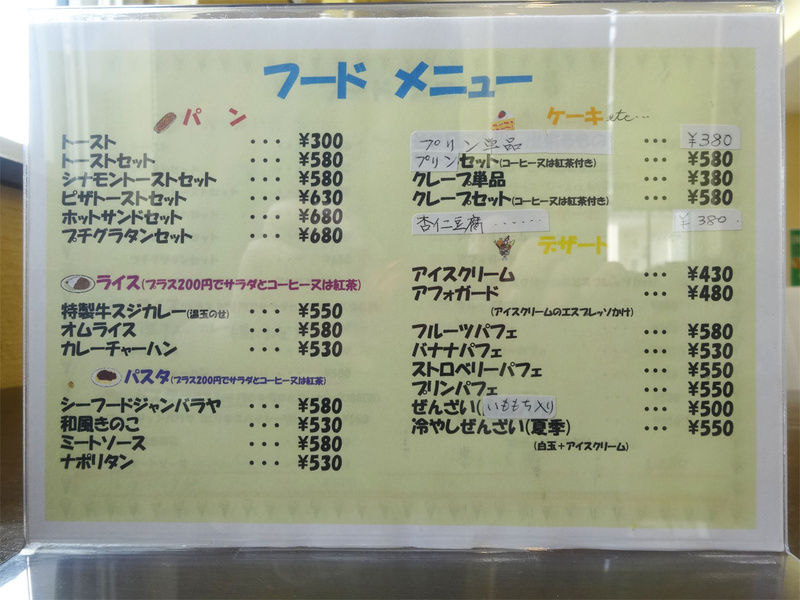 フード メニュー
パン
トースト ・・・ ¥300
トーストセット ・・・ ¥580
シナモントーストセット ・・・ ¥580
ピザトーストセット ・・・ ¥630
ホットサンドセット ・・・ ¥680
プチグラタンセット ・・・ ¥680
ライス(プラス200円でサラダとコーヒー又は紅茶)
特製牛スジカレー(温玉のせ) ・・・ ¥550
オムライス ・・・ ¥580
カレーチャーハン ・・・ ¥530
パスタ(プラス200円でサラダとコーヒー又は紅茶)
シーフードジャンバラヤ ・・・ ¥580
和風きのこ ・・・ ¥530
ミートソース ・・・ ¥580
ナポリタン ・・・ ¥530
ケーキetc…
プリン単品 ・・・ ¥380
プリンセット(コーヒー又は紅茶付き) ・・・ ¥580
クレープ単品 ・・・ ¥380
クレープセット(コーヒー又は紅茶付き) ・・・ ¥580
杏仁豆腐…… ¥380.
デザート
アイスクリーム ・・・ ¥430
アフォガード ・・・ ¥480
(アイスクリームのエスプレッソかけ)
フルーツパフェ ・・・ ¥580
バナナパフェ ・・・ ¥530
ストロベリーパフェ ・・・ ¥550
プリンパフェ ・・・ ¥550
ぜんざい(いももち入り) ・・・ ¥500
冷やしぜんざい(夏季) ・・・ ¥550
(白玉+アイスクリーム)